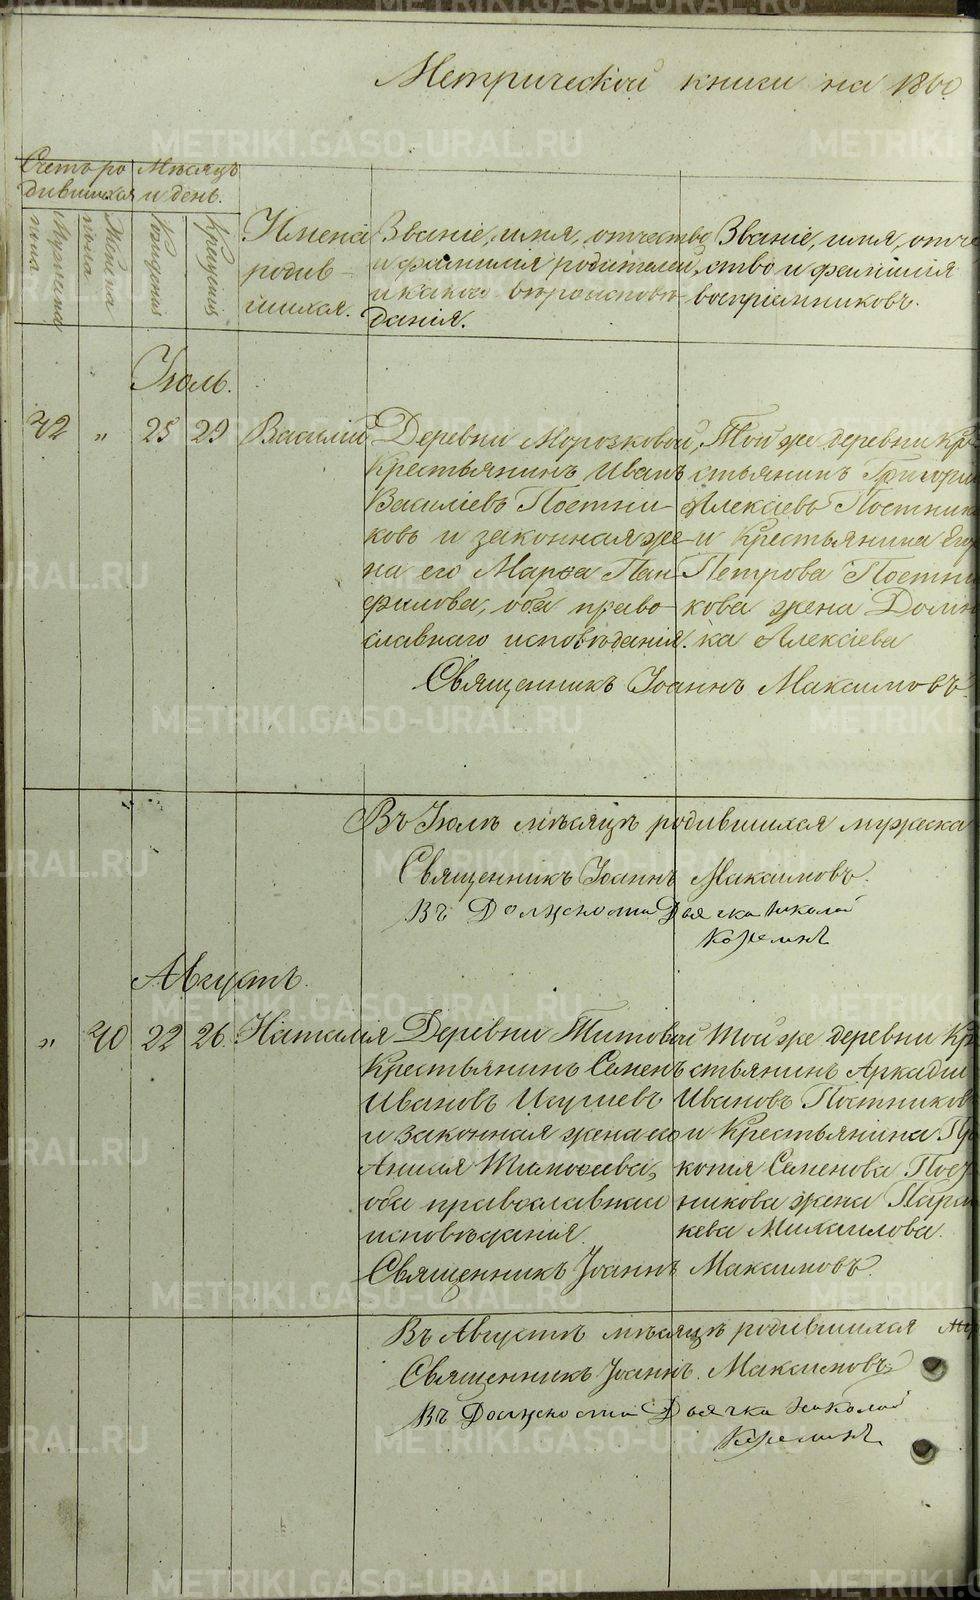 Метрической книги на 1860
Счетъ ро
дившихся
Мѣсяцъ
и день.
Мужеска
пола
Женска
пола
Рожденія
Крещенія
Имена
родив-
шихся.
Званіе, имя, отчество
и фамилія родителей,
и какого вѣроисповѣ-
данія.
Званіе, имя, отче-
ство и фамилія
воспріемниковъ.
Іюль.
42 " 25 29 Василій
Деревни Морозковой,
Крестьянинъ Иванъ
Василіевъ Постни-
ковъ и законная же-
на его Марѳа Пан-
филова, оба право-
славнаго исповѣданія.
Той же деревни кре
стьянинъ Григорій
Алексіевъ Постник
и Крестьянина Его
Петрова Постни
кова жена Домни
ка Алексіева
Священникъ Іоаннъ Максимовъ.
Въ Іюлѣ мѣсяцѣ родившихся мужеска
Священникъ Іоаннъ Максимовъ.
Въ Должности Дьячка Николай
Августъ.
" 40 22 26 Наталія
Деревни Титовой
Крестьянинъ Семенъ
Ивановъ
и законная жена его
Тимоѳеева,
оба православнаго
исповѣданія.
Той же деревни Кре
стьянинъ Аркадій
Ивановъ Постников
и Крестьянина Про
копія Семенова Пост
никова жена Парас
кева Михаилова.
Священникъ Іоаннъ Максимовъ.
Въ Августѣ мѣсяцѣ родившихся му
Священникъ Іоаннъ Максимовъ.
Въ Должности Дьячка Николай